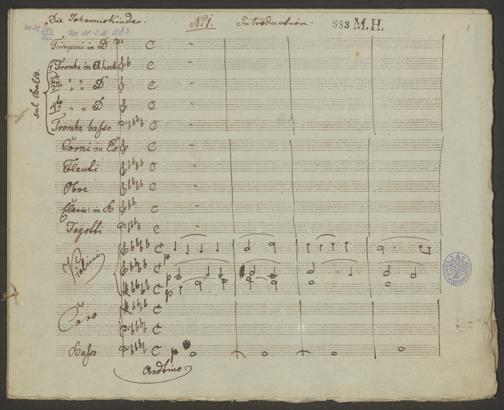 Die Johanniskinder.
No 1.
Introduction.
583 M.H.
Timpani in D
Tromba in A hoch
" " D
" " D
Tromba basso
Corni in
Flauti
Oboe
Clari: in A
Fagotti
Violini
p
p
p
Coro
Basso
p
Andtino.